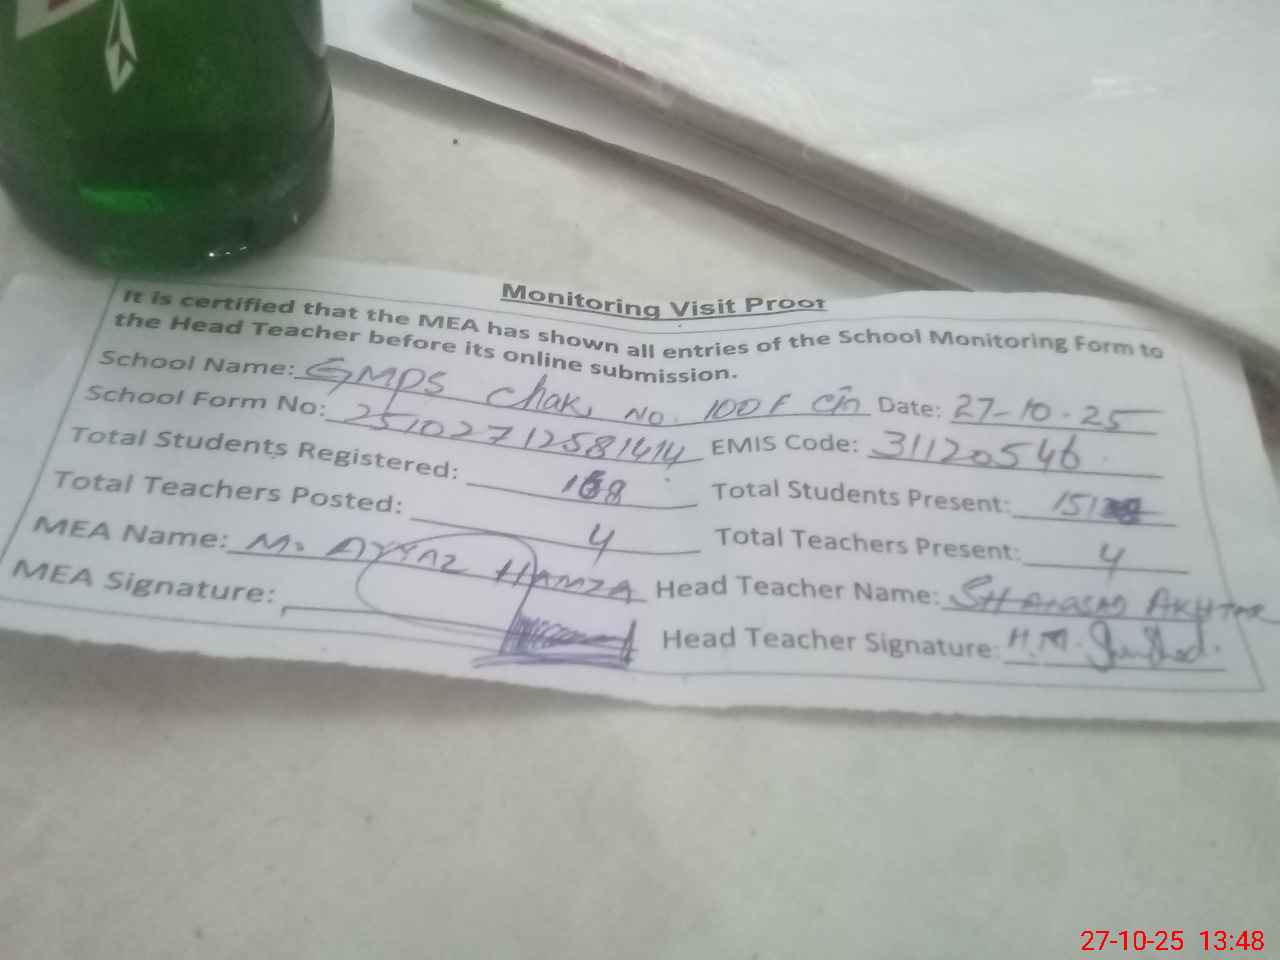 Monitoring Visit Proof
It is certified that the MEA has shown all entries of the School Monitoring Form to
the Head Teacher before its online submission.
School Name: GMPS Chak No. 100F Date: 27-10-25
School Form No: 25102712581414 EMIS Code: 31120546
Total Students Registered: 168 Total Students Present: 151
Total Teachers Posted: 4 Total Teachers Present: 4
MEA Name: M. AYYAZ HAMZA Head Teacher Name: AKHTAR
MEA Signature: Head Teacher Signature: H.M.
27-10-25 13:48